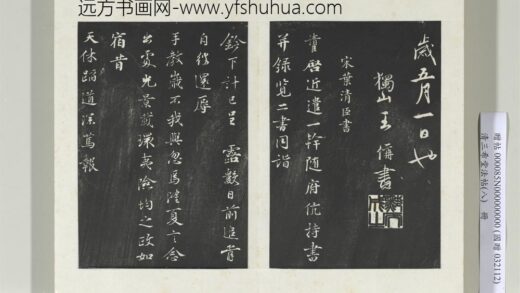 远方书画网-www.yfshuhua.com
歲五月一日也
獨山王偁書
宋葉清臣書
啓近遣一幹随府伉持書
并録覽二書同詣
鈴下計已呈露數日前追胥
自繼還辱
手教歲不我與忽焉隆夏言念
出處光景藏環夷險均之政如
宿昔
天休蹈道深篤報
贈帖 000085N000000000 (國贈 032112)
清三希堂法帖(八) 冊